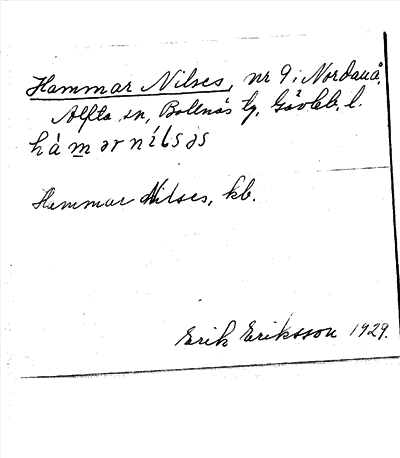 Hammar Nilses, nr 9 i Nordanå,
Alfta sn, Bollnäs tg, Gävleb. l.
hàmər nílsəs
Hammar Nilses, kb.
Erik Eriksson 1929.